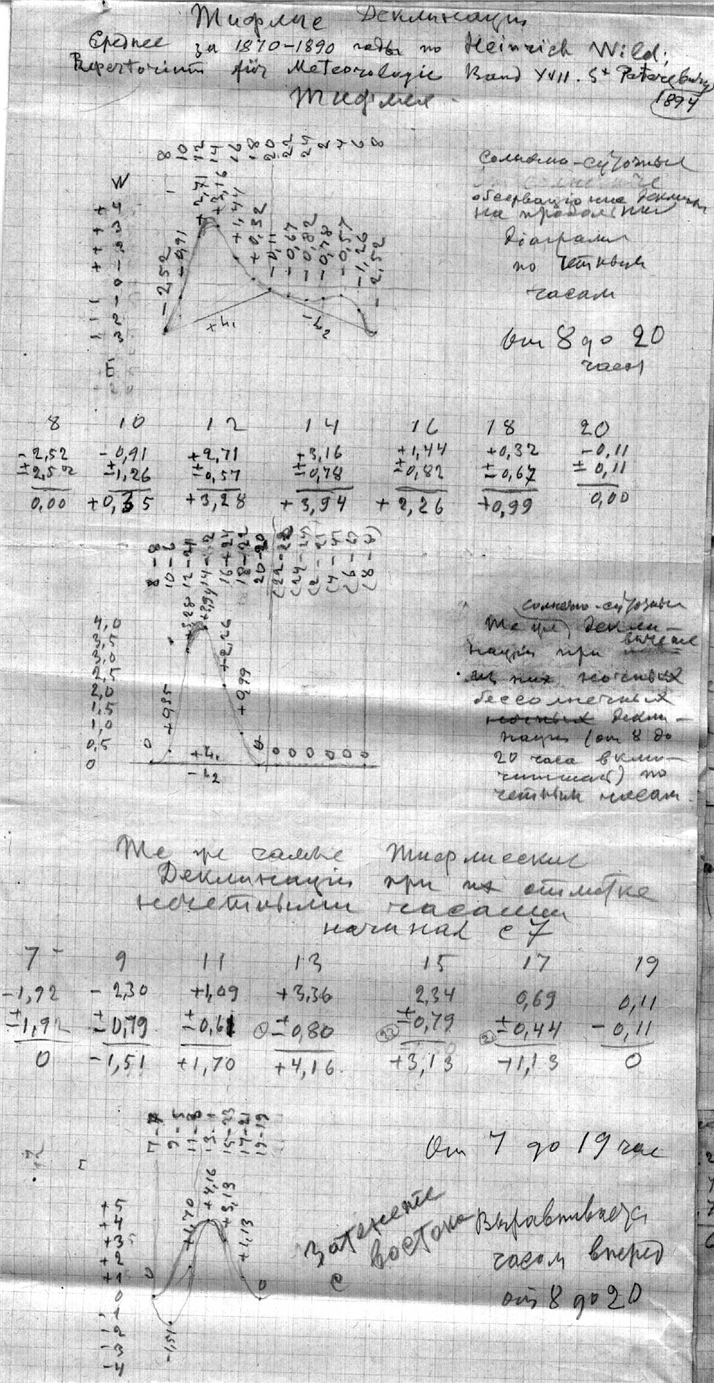 Тифлис Деклинация
Среднее за 1870-1890 годы по Heinrich Wild;
Repertorium für Meteorologie Band XVII. St Petersburg
1894
Тифлис.
8 10 12 14 16 18 20 22 24 2 4 6 8
W
+ 4
+ 3
+ 2
+ 1
0
- 1
- 2
- 3
E
-2,52 -0,91 +2,71 +3,16 +1,44 +0,32 -0,11 -0,67 -0,82 -0,78 -0,57 -1,26 -2,52
+h₁ -h₂
солнечно-суточных
на
Диаграмм
по четным
часам
От 8 до 20
часов
8 10 12 14 16 18 20
-2,52 -0,91 +2,71 +3,16 +1,44 +0,32 -0,11
±2,52 ±1,26 ±0,57 ±0,78 ±0,82 ±0,67 ±0,11
0,00 +0,35 +3,28 +3,94 +2,26 +0,99 0,00
8-8 10-6 12-4 14-2 16-24 18-22 20-20 (22- (24- (2- (4- (6- (8-
4,0
3,5
3,0
2,5
2,0
1,5
1,0
0,5
0
0 +0,35 +3,28 +3,94 +2,26 +0,99 0 0 0 0 0 0 0
+h₁
-h₂
солнечно-суточных
Те же декли-
нации при вычете
из них ночных
бессолнечных
ночных декли-
нации (от 8 до
20 часа вклю-
чительно) по
четным часам.
Те же самые Тифлисские
Деклинации при их отметке
нечетными часами
начиная с 7
7 9 11 13 15 17 19
-1,92 -2,30 +1,09 +3,36 2,34 0,69 0,11
±1,92 ±0,79 ±0,61 ±0,80 ±0,79 ±0,44 -0,11
0 -1,51 +1,70 +4,16 +3,13 +1,13 0
7-7 9-5 11-3 13-1 15-23 17-21 19-19
+5
+4
+3
+2
+1
0
-1
-2
-3
-4
0 -1,51 +1,70 +4,16 +3,13 +1,13 0
От 7 до 19 час
Затенение
с востока
Выравнивается
часом вперед
от 8 до 20